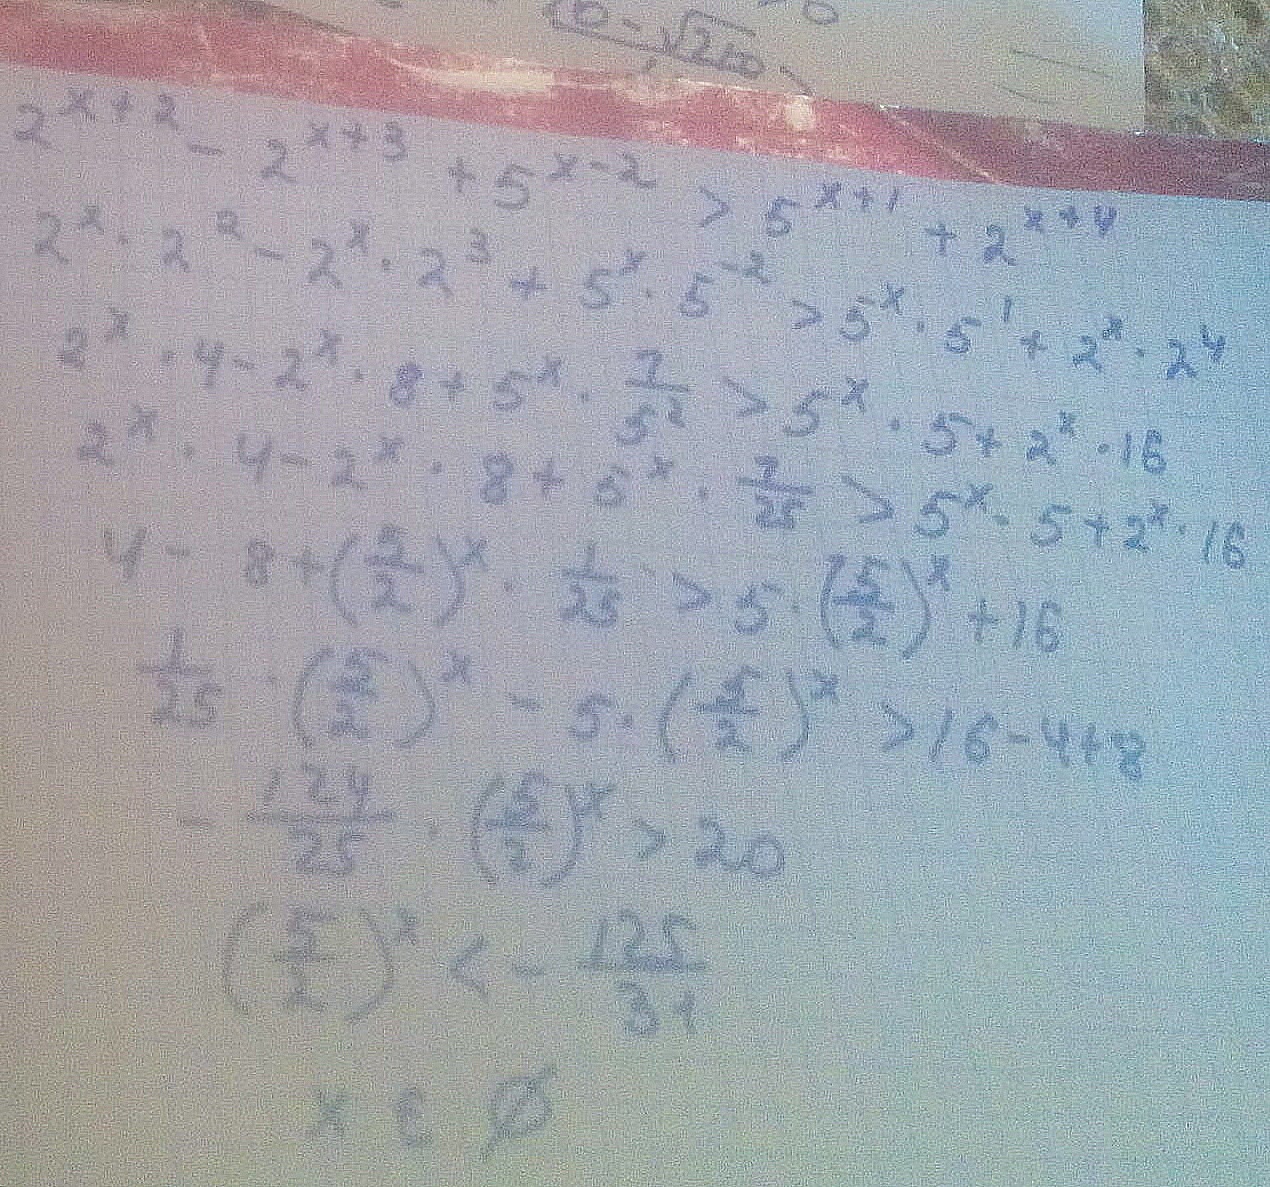 6 - √210
2^{x+2} - 2^{x+3} + 5^{x-2} > 5^{x+1} + 2^{x+4}
2^x · 2^2 - 2^x · 2^3 + 5^x · 5^{-2} > 5^x · 5^1 + 2^x · 2^4
2^x · 4 - 2^x · 8 + 5^x · \frac{1}{5^2} > 5^x · 5 + 2^x · 16
2^x · 4 - 2^x · 8 + 5^x · \frac{1}{25} > 5^x · 5 + 2^x · 16
4 - 8 + (\frac{5}{2})^x · \frac{1}{25} > 5 · (\frac{5}{2})^x + 16
\frac{1}{25} · (\frac{5}{2})^x - 5 · (\frac{5}{2})^x > 16 - 4 + 8
- \frac{124}{25} · (\frac{5}{2})^x > 20
(\frac{5}{2})^x < - \frac{125}{31}
x ∈ Ø